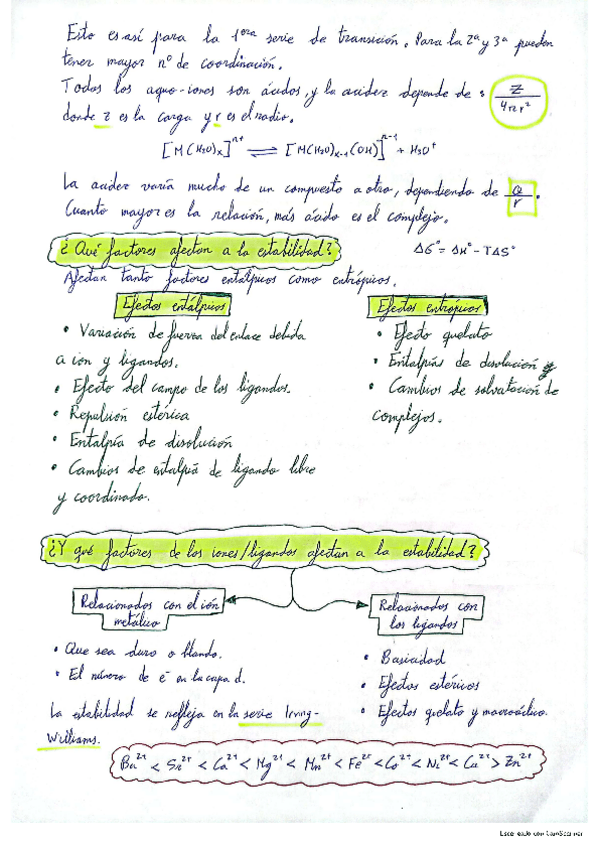 Esto es así para la 1ora serie de transición. Para la 2ª y 3ª pueden
tener mayor nº de coordinación.
Todos los aquo-iones son ácidos, y la acidez depende de : Z/4πr²
donde z es la carga y r es el radio.
[M(H₂O)ₓ]ⁿ⁺ ⇌ [M(H₂O)ₓ₋₁(OH)]ⁿ⁻¹ + H₃O⁺
La acidez varía mucho de un compuesto a otro, dependiendo de Q/r.
Cuanto mayor es la relación, más ácido es el complejo.
¿Qué factores afectan a la estabilidad?
ΔG° = ΔH° - TΔS°
Afectan tanto factores entálpicos como entrópicos.
Efectos entálpicos
• Variación de fuerza del enlace debida
a ion y ligandos.
• Efecto del campo de los ligandos.
• Repulsión estérica
• Entalpía de disolución
• Cambios de entalpía de ligando libre
y coordinado.
Efectos entrópicos
• Efecto quelato
• Entalpías de disolución y
• Cambios de solvatación de
complejos.
¿Y qué factores de los iones/ligandos afectan a la estabilidad?
Relacionados con el ión
metálico
• Que sea duro o blando.
• El número de e⁻ en la capa d.
La estabilidad se refleja en la serie Irving-
Williams.
Relacionados con
los ligandos
• Basicidad
• Efectos estéricos
• Efectos quelato y macrocíclico.
Ba²⁺ < Sr²⁺ < Ca²⁺ < Mg²⁺ < Mn²⁺ < Fe²⁺ < Co²⁺ < Ni²⁺ < Cu²⁺ > Zn²⁺
Escaneado con CamScanner